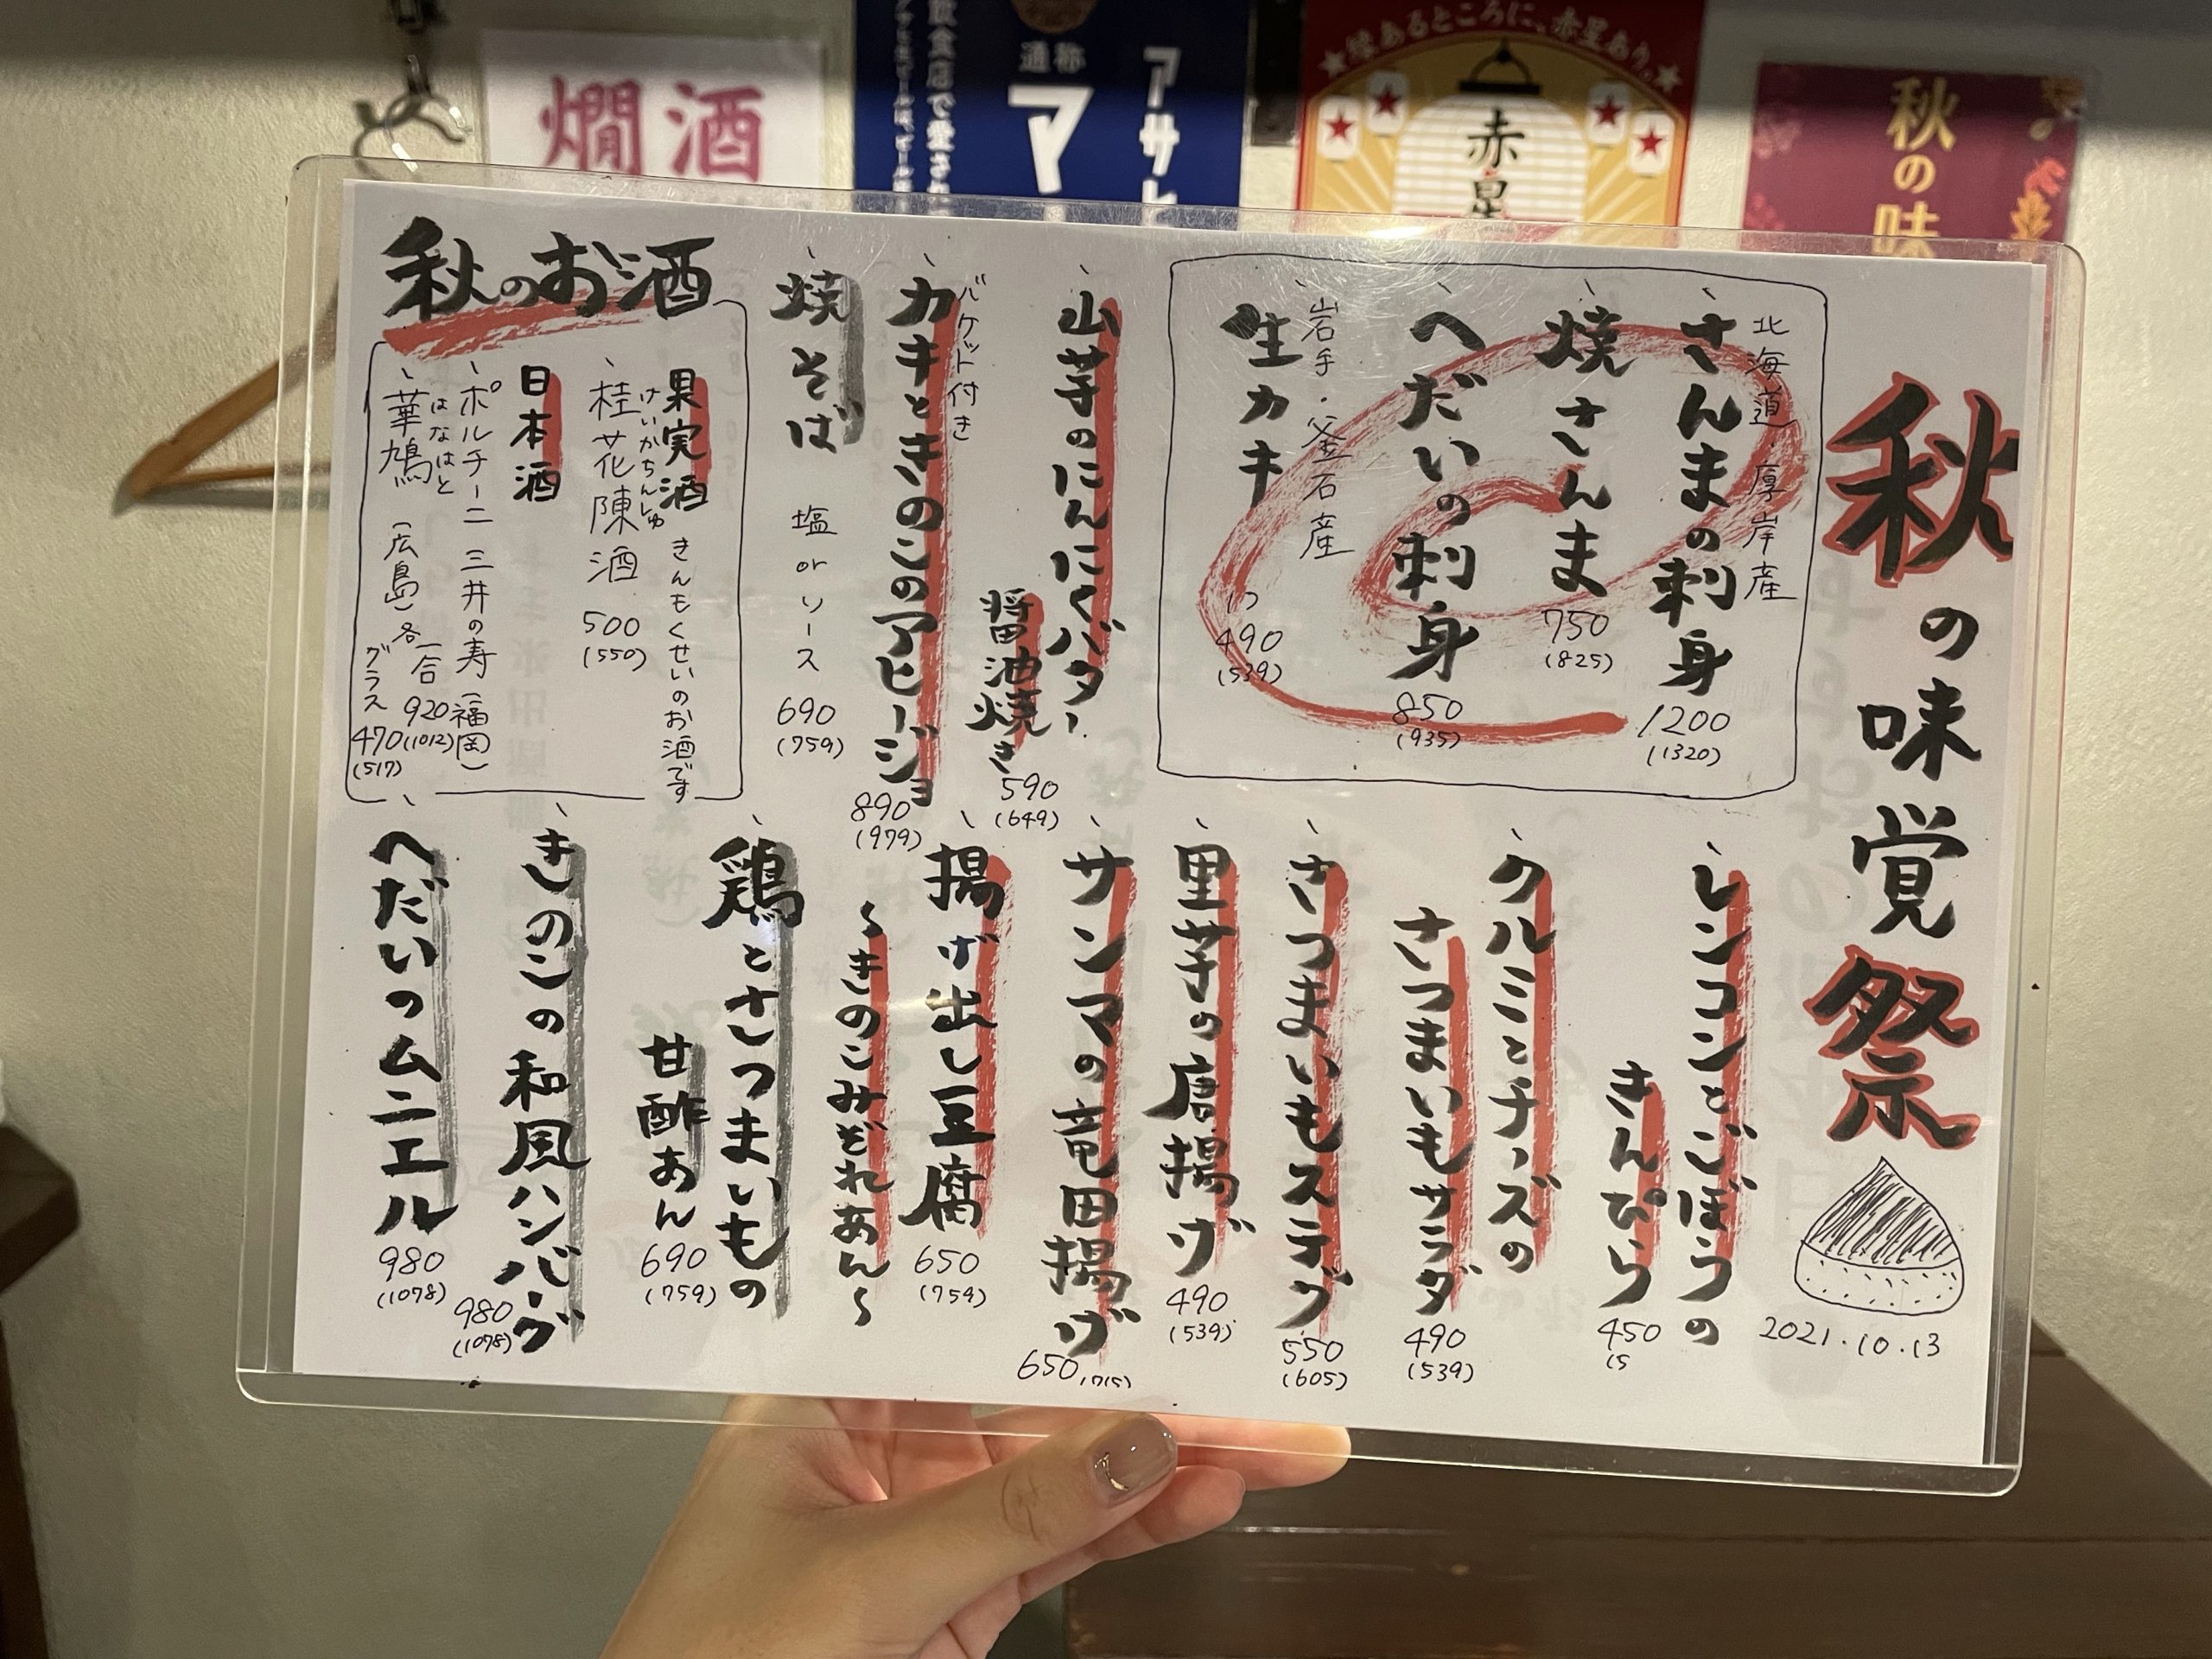 燗酒
飲食店で愛され
通称
マ
アサヒ
縁あるところに、赤星あり。
赤星
秋の味
秋の味覚祭
2021.10.13
北海道・厚岸産
さんまの刺身
1200
(1320)
焼さんま
750
(825)
へだいの刺身
850
(935)
岩手・釜石産
生カキ
1つ
490
(539)
山芋のにんにくバター
醤油焼き
590
(649)
バケット付き
カキときのこのアヒージョ
890
(979)
焼そば
塩 or ソース
690
(759)
秋のお酒
果実酒
きんもくせいのお酒です
けいかちんしゅ
桂花陳酒
500
(550)
日本酒
ポルチーニ 三井の寿(福岡)
はなはと
華鳩 (広島)
各
一合
920
(1012)
グラス
470
(517)
レンコンとごぼうの
きんぴら
450
(5
クルミとチーズの
さつまいもサラダ
490
(539)
さつまいもステーク
550
(605)
里芋の唐揚げ
490
(539)
サンマの竜田揚げ
650
(715)
揚げ出し豆腐
650
(759)
〜きのこみぞれあん〜
鶏とさつまいもの
甘酢あん
690
(759)
きのこの和風ハンバーグ
980
(1078)
へだいのムニエル
980
(1078)